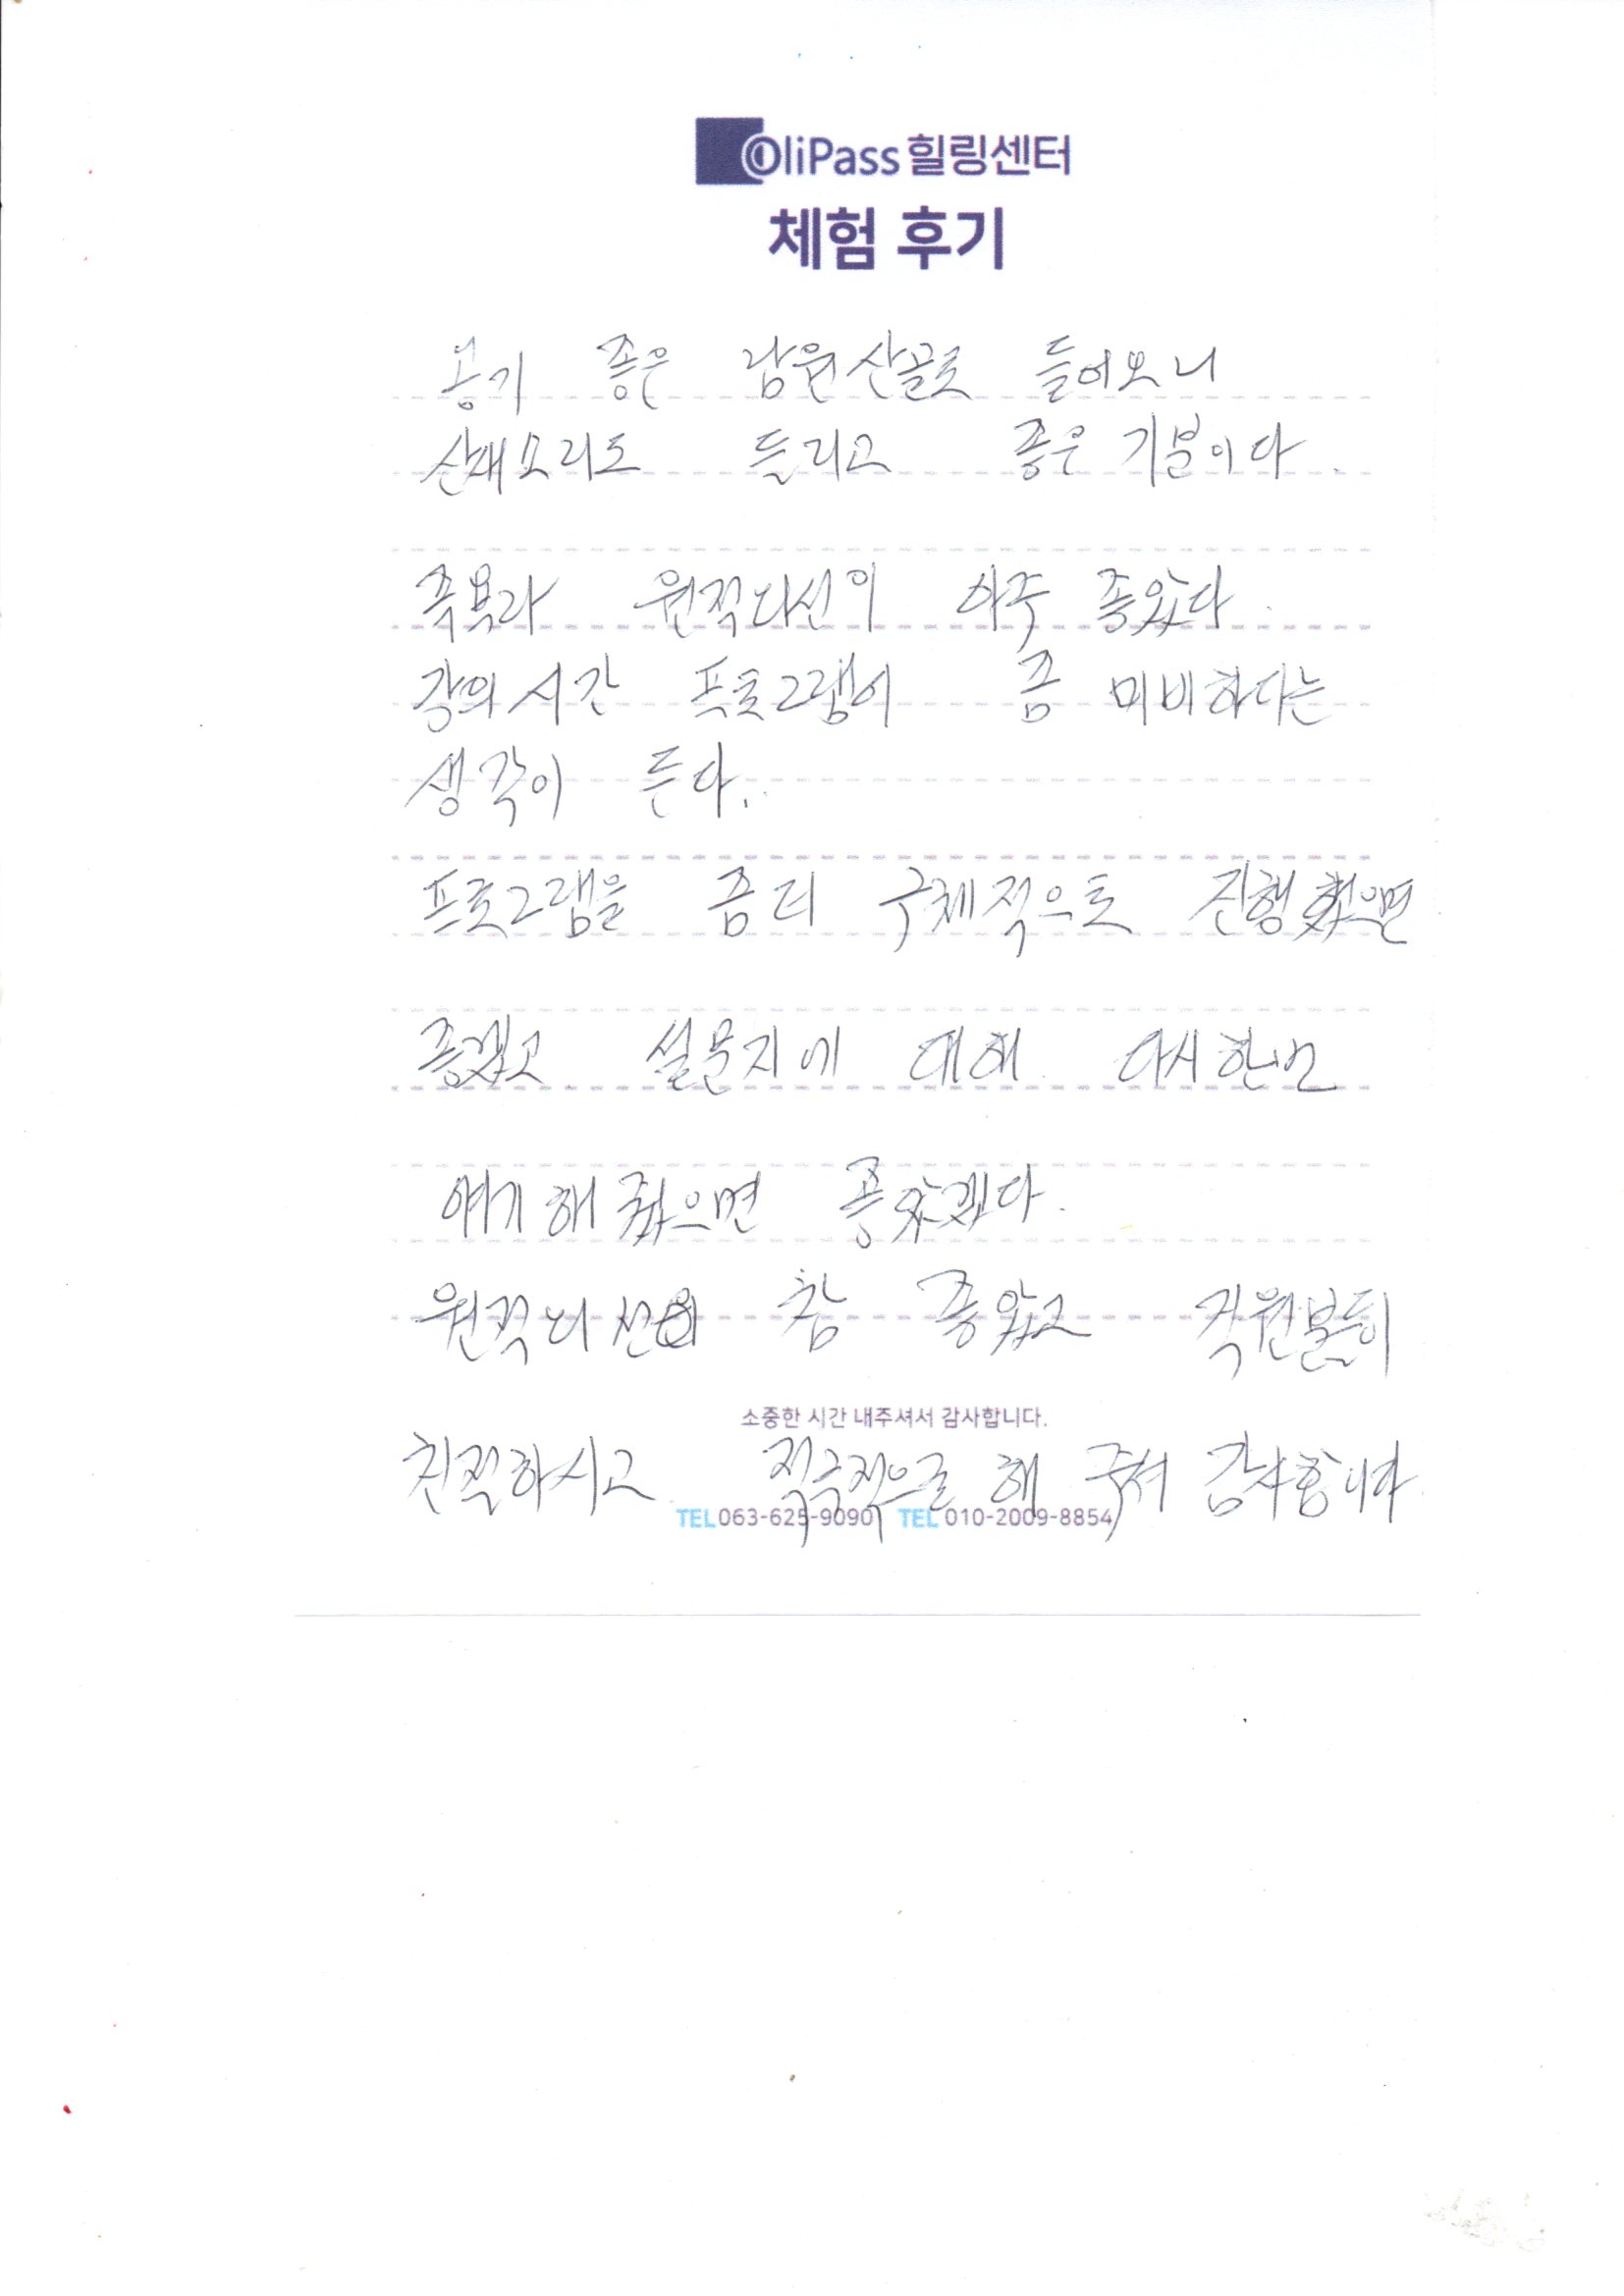 OliPass 힐링센터
체험 후기
공기 좋은 남원산골로 들어오니
산새소리도 들리고 좋은 기분이다.
족욕과 원적외선이 아주 좋았다.
강의시간 프로그램이 좀 미비하다는
생각이 든다.
프로그램을 좀 더 구체적으로 진행했으면
좋겠고 설문지에 대해 다시한번
얘기해 줬으면 좋았겠다.
원적외선이 참 좋았고 직원분들이
소중한 시간 내주셔서 감사합니다.
친절하시고 적극적으로 해 주셔 감사합니다
TEL 063-625-9090 TEL 010-2009-8854